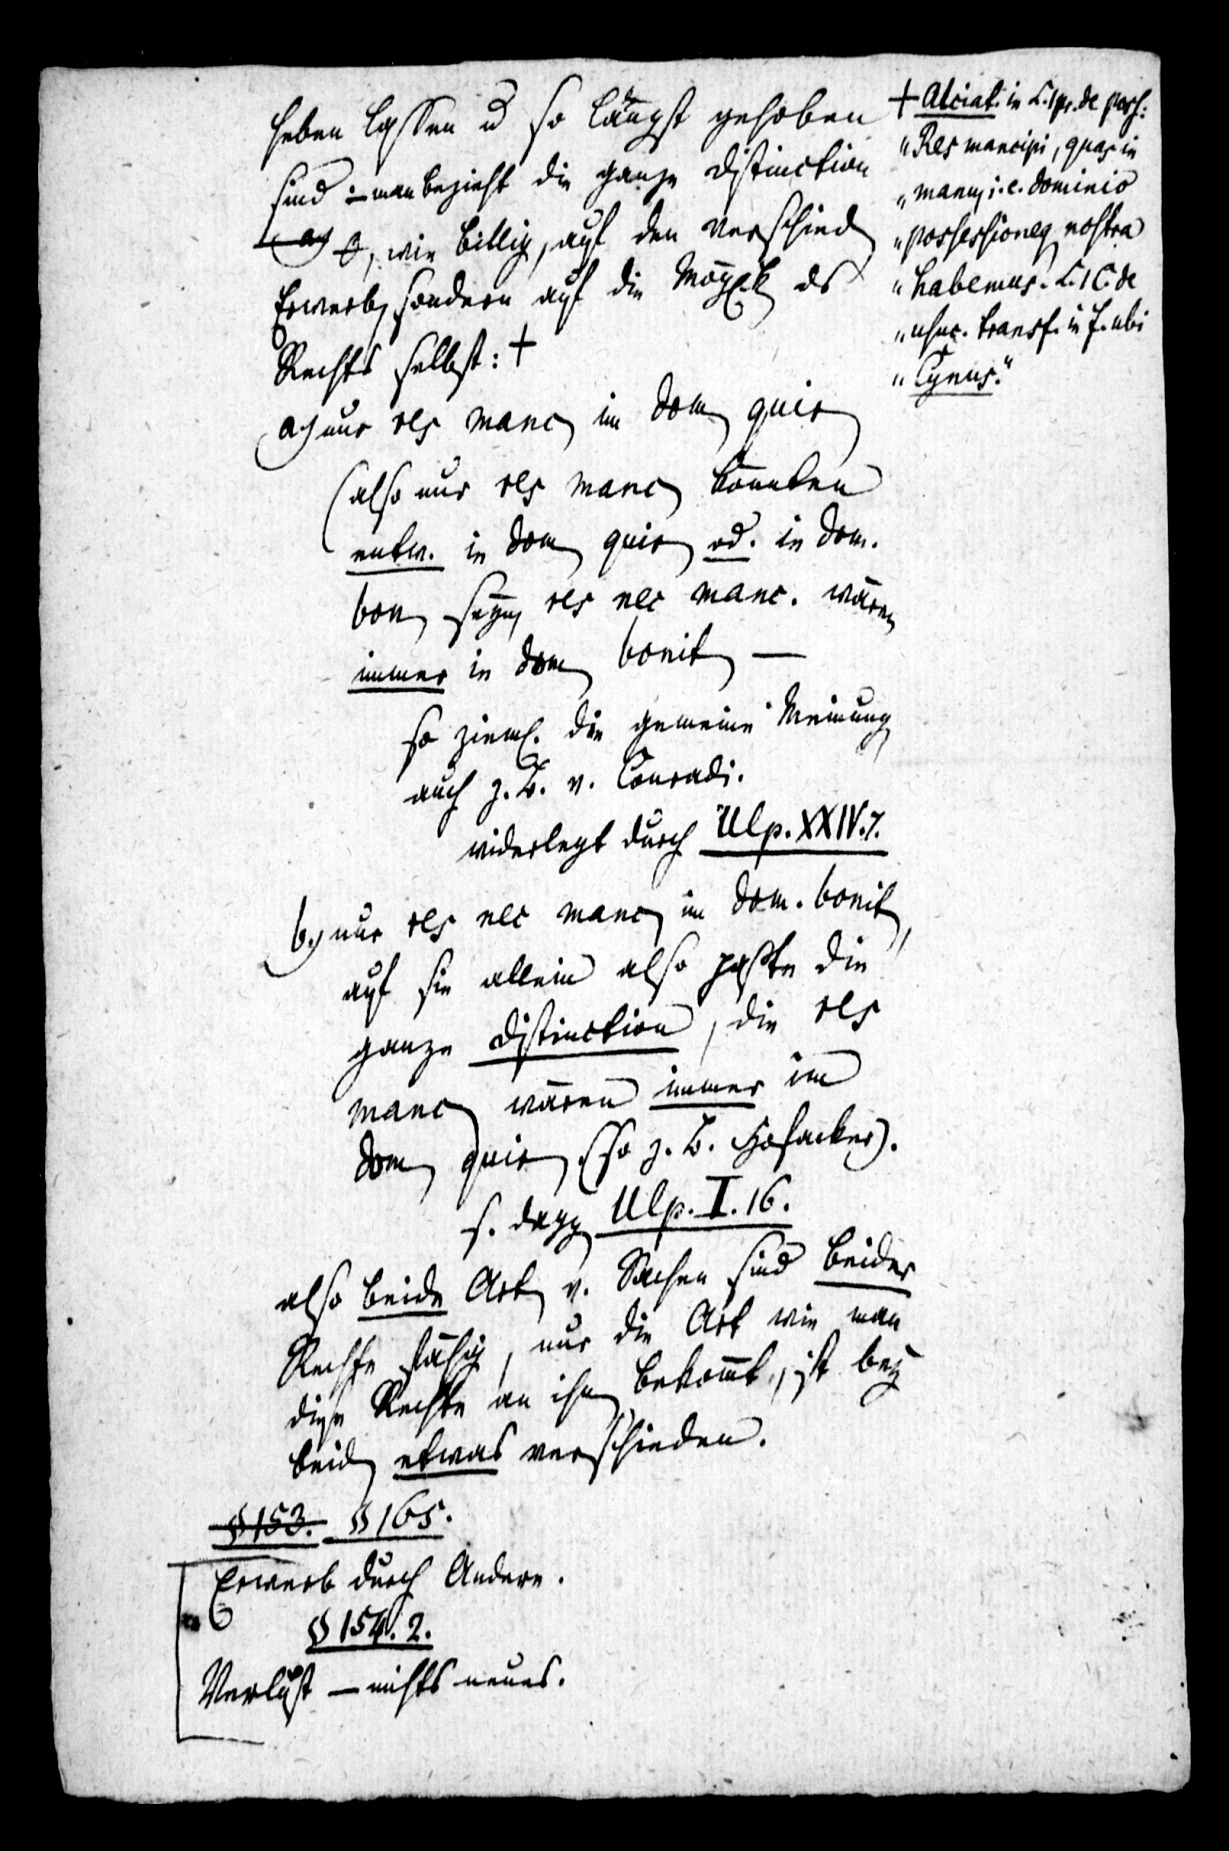 heben lassen u so längst gehoben
sind – man bezieht die ganze Distinction
a) , wie billig, auf den verschied
Erwerb, sondern auf die Möglk ds
Rechts selbst: +
a) nur res manc im dom quir
(also nur res manc könnten
entw. in dom quir od. in dom.
bon seyn, res nec manc. wären
immer in dom bonit —
so zieml. die gemeine Meinung
auch z. B. v. Conradi.
widerlegt durch Ulp. XXIV. 7.
b.) nur res nec manc im dom. bonit,
auf sie allein also paßte die
ganze Distinction, die res
manc wären immer im
dom quir (so z. B. Hofacker).
s. dagg Ulp. I. 16.
also beide Art v. Sachen sind beider
Rechte fähig, nur die Art wie man
diese Rechte an ihn bekommt, ist bey
beid etwas verschieden.
§ 153. § 165.
Erwerb durch Andere.
§ 154. 2.
Verlust – nichts neues.
+ Alciat. in L. 1 pr. de poss:
„Res mancipi, quas in
„manu, i. e. dominio
„possessioneq nostra
„habemus. L. 1 C. de
„usuc. transf. in f. ubi
„Cynus."